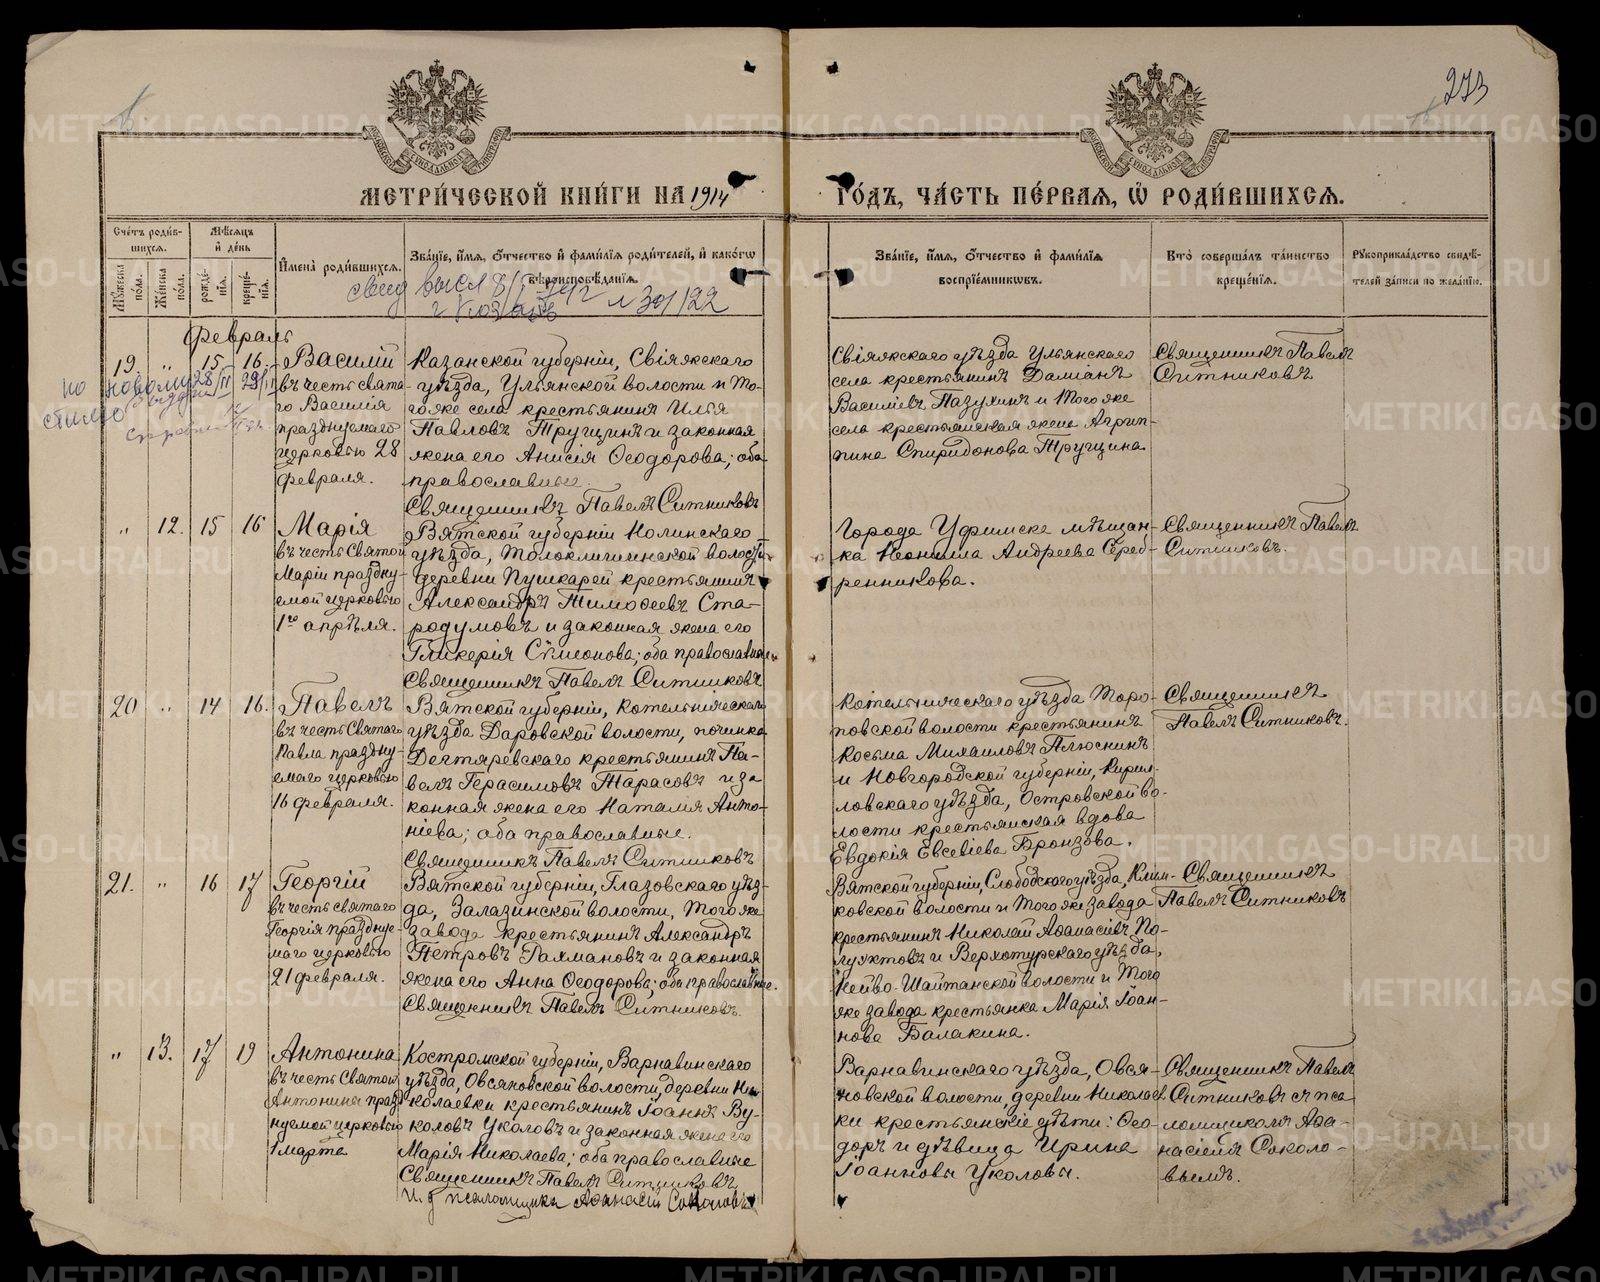 273
МЕТРИ́ЧЕСКОЙ КНИ́ГИ НА 1914
ГО́ДЪ, ЧА́СТЬ ПЕ́РВАЯ, Ѽ РОДИ́ВШИХСЯ.
Сче́тъ роди́в-
шихся.
Му́жеска по́ла.
Же́нска по́ла.
Мѣ́сяцъ и де́нь
рожде́-
нія.
креще́-
нія.
Имена̀ роди́вшихся.
Зва́ніе, и́мя, о́тчество и фами́лія роди́телей, и како́гѡ
вѣроисповѣ́данія.
Зва́ніе, и́мя, о́тчество и фами́лія
воспріе́мникѡвъ.
Кто̀ соверша́лъ та́инство
креще́нія.
Рꙋкоприкла́дство свидѣ́-
телей за́писи по жела́нію.
Февраль
19. " 15 16.
по новому 28/II
стилю
Василій
въ честь свята-
го Василія
празднуемаго
церковью 28
февраля.
Казанской губерніи, Свіяжскаго
уѣзда, Ульянской волости и то-
го же села крестьянинъ Илья
Павловъ Трущинъ и законная
жена его Анисія Ѳеодорова; оба
православные.
Священникъ Павелъ Ситниковъ
Свіяжскаго уѣзда Ульянскаго
села крестьянинъ Даміанъ
Василіевъ Пазухинъ и того же
села крестьянская жена Агрип-
пина Спиридонова Трущина
Священникъ Павелъ
Ситниковъ
" 12. 15 16
Марія
въ честь Святой
Маріи праздну-
емой церковью
1го апрѣля.
Вятской губерніи Нолинскаго
уѣзда, волости,
деревни Пушкарей крестьянинъ
Александръ Тимоѳеевъ Ста-
родумовъ и законная жена его
Гликерія Сѵмеонова; оба православные
Священникъ Павелъ Ситниковъ
Города Уфимска мѣщан-
ка Неонилла Андреева Сереб-
ренникова.
Священникъ Павелъ
Ситниковъ.
20 " 14 16.
Павелъ
въ честь Святаго
Павла праздну-
емаго церковью
16 февраля.
Вятской губерніи, Котельническаго
уѣзда Даровской волости, починка
Дегтяревскаго крестьянинъ Па-
велъ Герасимовъ Тарасовъ и за
конная жена его Наталия Анто-
ніева; оба православные.
Священникъ Павелъ Ситниковъ
Котельническаго уѣзда Торо-
повской волости крестьянинъ
Косьма Михаиловъ Плюснинъ
и Новгородской губерніи, Кирил-
ловскаго уѣзда, Островской во-
лости крестьянская вдова
Евдокія Евсевіева Бронзова.
Священникъ
Павелъ Ситниковъ.
21. " 16 17
Георгій
въ честь святаго
Георгія празднуе-
маго церковью
21 февраля.
Вятской губерніи, Глазовскаго уѣз-
да, Залазинской волости, того же
завода крестьянинъ Александръ
Петровъ Рахмановъ и законная
жена его Анна Ѳеодорова; оба православные.
Священникъ Павелъ Ситниковъ.
Вятской губерніи, Слободского уѣзда, Клим-
ковской волости и того же завода
крестьянинъ Николай Аѳанасіевъ По-
луяхтовъ и Верхотурскаго уѣзда,
Нейво-Шайтанской волости и того
же завода крестьянка Марія Іоан-
нова Балакина.
Священникъ
Павелъ Ситниковъ
" 13. 17 19
Антонина
въ честь Святой
Антонины празд
нуемой церковью
1 марта
Костромской губерніи, Варнавинскаго
уѣзда, Овсяновской волости, деревни Ни-
колаевки крестьянинъ Іоаннъ Ву-
коловъ Уколовъ и законная жена его
Марія Николаева; оба православные
Священникъ Павелъ Ситниковъ
И. д. псаломщика Аѳанасій Соколовъ
Варнавинскаго уѣзда, Овся-
новской волости, деревни Николаев
ки крестьянскіе дѣти: Ѳео-
доръ и дѣвица Ирина
Іоанновы Уколовы.
Священникъ Павелъ
Ситниковъ с пса
ломщикомъ Аѳа-
насіемъ Соколо-
вымъ.